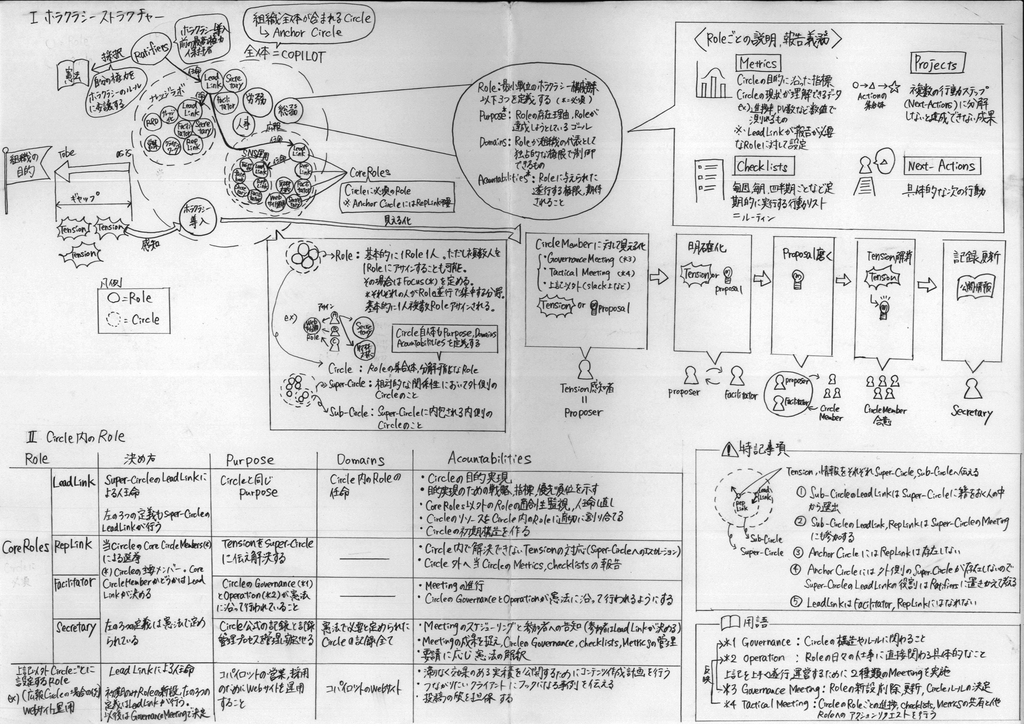 I ホラクラシーストラクチャー
組織全体が含まれるCircle
↳ Anchor Circle
全体=COPILOT
採択
Ratifiers
ホラクラシー導入
前の最高権力
保持者
憲法
自分の権力を
ホラクラシーのルール
に委譲する
任命
Lead
Link
Secre
tary
Facili
tator
労務
総務
人事
広報
ナレッジラボ
R&D
Lead
Link
Rep
Link
NS運用
任命
Lead
Link
組織の
目的
Tobe
asis
ギャップ
Tension
Tension
Tension
感知
ホラクラシー
導入
見える化
CoreRoles
Circleに必須のRole
※ Anchor CircleにはRepLink不要
凡例
○=Role
=Circle
Role:最小単位のホラクラシー構成要素
以下3つを定義する (*=必須)
Purpose*: Roleの存在理由、Roleが
達成しようとしているゴール
Domains: Roleが組織の代表として
独占的な権限で制御
できるもの
Accountabilities*: Roleに与えられた
遂行する権限、期待
されること
〈Roleごとの説明、報告義務〉
Metrics
Circleの目的に沿った指標
Circleの現状が理解できるデータ
ex)進捗、PV数など数値で
測れるもの
※ LeadLinkが報告が必要
なRoleに対して設定
Projects
Actionの
集合体
複数の行動ステップ
(Next-Actions)に分解
しないと達成できない成果
Checklists
毎回、毎月、四半期ごとなど定
期的に実行する行動リスト
=ルーティン
Next-Actions
具体的な次の行動
Role: 基本的に1Role1人、ただし複数人を
1Roleにアサインすることも可能。
その場合はFocus(※)を定める。
※それぞれの人がRole遂行で集中する分野
基本的に1人複数Roleアサインされる。
ex)
アサイン
Role
Secre
tary
Circle自体もPurpose、Domains
Accountabilitiesを定義する
Circle: Roleの集合体、分解可能なRole
Super-Circle: 相対的な関係性において外側の
Circleのこと
Sub-Circle: Super-Circleに内包される内側の
Circleのこと
CircleMemberに対して見える化
・Governance Meeting (*3)
・Tactical Meeting (*4)
・上記以外(slack上など)
Tension or Proposal
Tension感知者
=
Proposer
明確化
Tension or
proposal
proposer
Facilitator
Proposal磨く
proposer
Facilitator
Circle
Member
Tension解消
Tension
CircleMember
合意
記録更新
公開情報
Secretary
II Circle内のRole
Role 決め方 Purpose Domains Acountabilities
CoreRoles
LeadLink
Super-CircleのLeadLinkに
よる任命
左の3つの定義もSuper-Circleの
LeadLinkが行う
Circleと同じ
purpose
Circle内のRoleの
任命
・Circleの目的実現
・目的実現のための戦略、指標、優先順位を示す
・Core Roles以外のRoleの適合性監視、人の入れ直し
・CircleのリソースをCircle内のRoleに適切に割り振る
・Circleの初期構造を作る
RepLink
当CircleのCore CircleMembers(※)
による選挙
(※) Circleの主要メンバー。Core
CircleMemberかどうかはLead
Linkが決める
TensionをSuper-Circle
に伝え解決する
・Circle内で解決できないTensionの対応(Super-Circleへのエスカレーション)
・Circle外へ当CircleのMetrics、Checklistsの報告
Facilitator
CircleのGovernance(*1)
とOperation(*2)が憲法
に沿って行われていること
・Meetingの進行
・CircleのGovernanceとOperationが憲法に沿って行われるようにする
Secretary
左の3つの定義は憲法で定め
られている
Circle公式の記録と記録
管理プロセスを管理、安定させる
憲法で必要と定められた
Circleの記録全て
・Meetingのスケジューリングと参加者への告知(参加者はLeadLinkが決める)
・Meetingの成果を捉え、CircleのGovernance、Checklists、Metricsの管理
・要請に応じ憲法の解釈
上記以外Circleごとに
設定するRole
ex) (広報Circleの場合の例)
Webサイト運用
LeadLinkによる任命
初期のみRoleの新設、左の3つの
定義はLeadLinkが行う。
以後はGovernanceMeetingで決定
コパイロットの営業、採用
のためにWebサイトを運用
すること
コパイロットのWebサイト
・滞りなく効果のある実績を公開するためにコンテンツ作成計画を行う
・つながりたいクライアントにフックになる事例を伝える
特記事項
Tension、情報をそれぞれSuper-Circle、Sub-Circleへ伝える
Rep
Link
Lead
Link
Sub-Circle
Super-Circle
① Sub-CircleのLeadLinkはSuper-Circleに籍をおく人の中
から選出
② Sub-CircleのLeadLink、RepLinkはSuper-CircleのMeeting
にも参加する
③ Anchor CircleにはRepLinkは存在しない
④ Anchor Circleには外側のSuper-Circleが存在しないので
Super-CircleのLeadLinkの役割はRatifiersに置きかえて考える
⑤ LeadLinkはFacilitator、RepLinkにはなれない
用語
*1 Governance: Circleの構造やルールに関わること
*2 Operation: Roleの日々の仕事に直接関わる具体的なこと
上記を上手く遂行、運営するために2種類のMeetingを実施
*3 Governance Meeting: Roleの新設、削除、更新、Circleルールの決定
*4 Tactical Meeting: CircleのRoleごとの進捗、checklists、Metricsの共有と他
Roleへのアクションリクエストを行う
反映